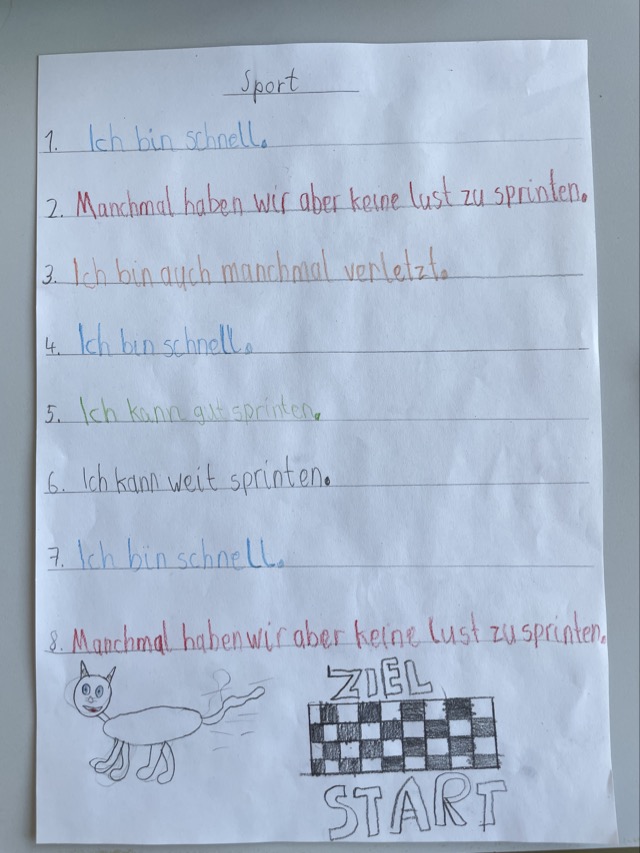 Sport
1. Ich bin schnell.
2. Manchmal haben wir aber keine lust zu sprinten.
3. Ich bin auch manchmal verletzt.
4. Ich bin schnell.
5. Ich kann gut sprinten.
6. Ich kann weit sprinten.
7. Ich bin schnell.
8. Manchmal haben wir aber keine lust zu sprinten.
ZIEL
START